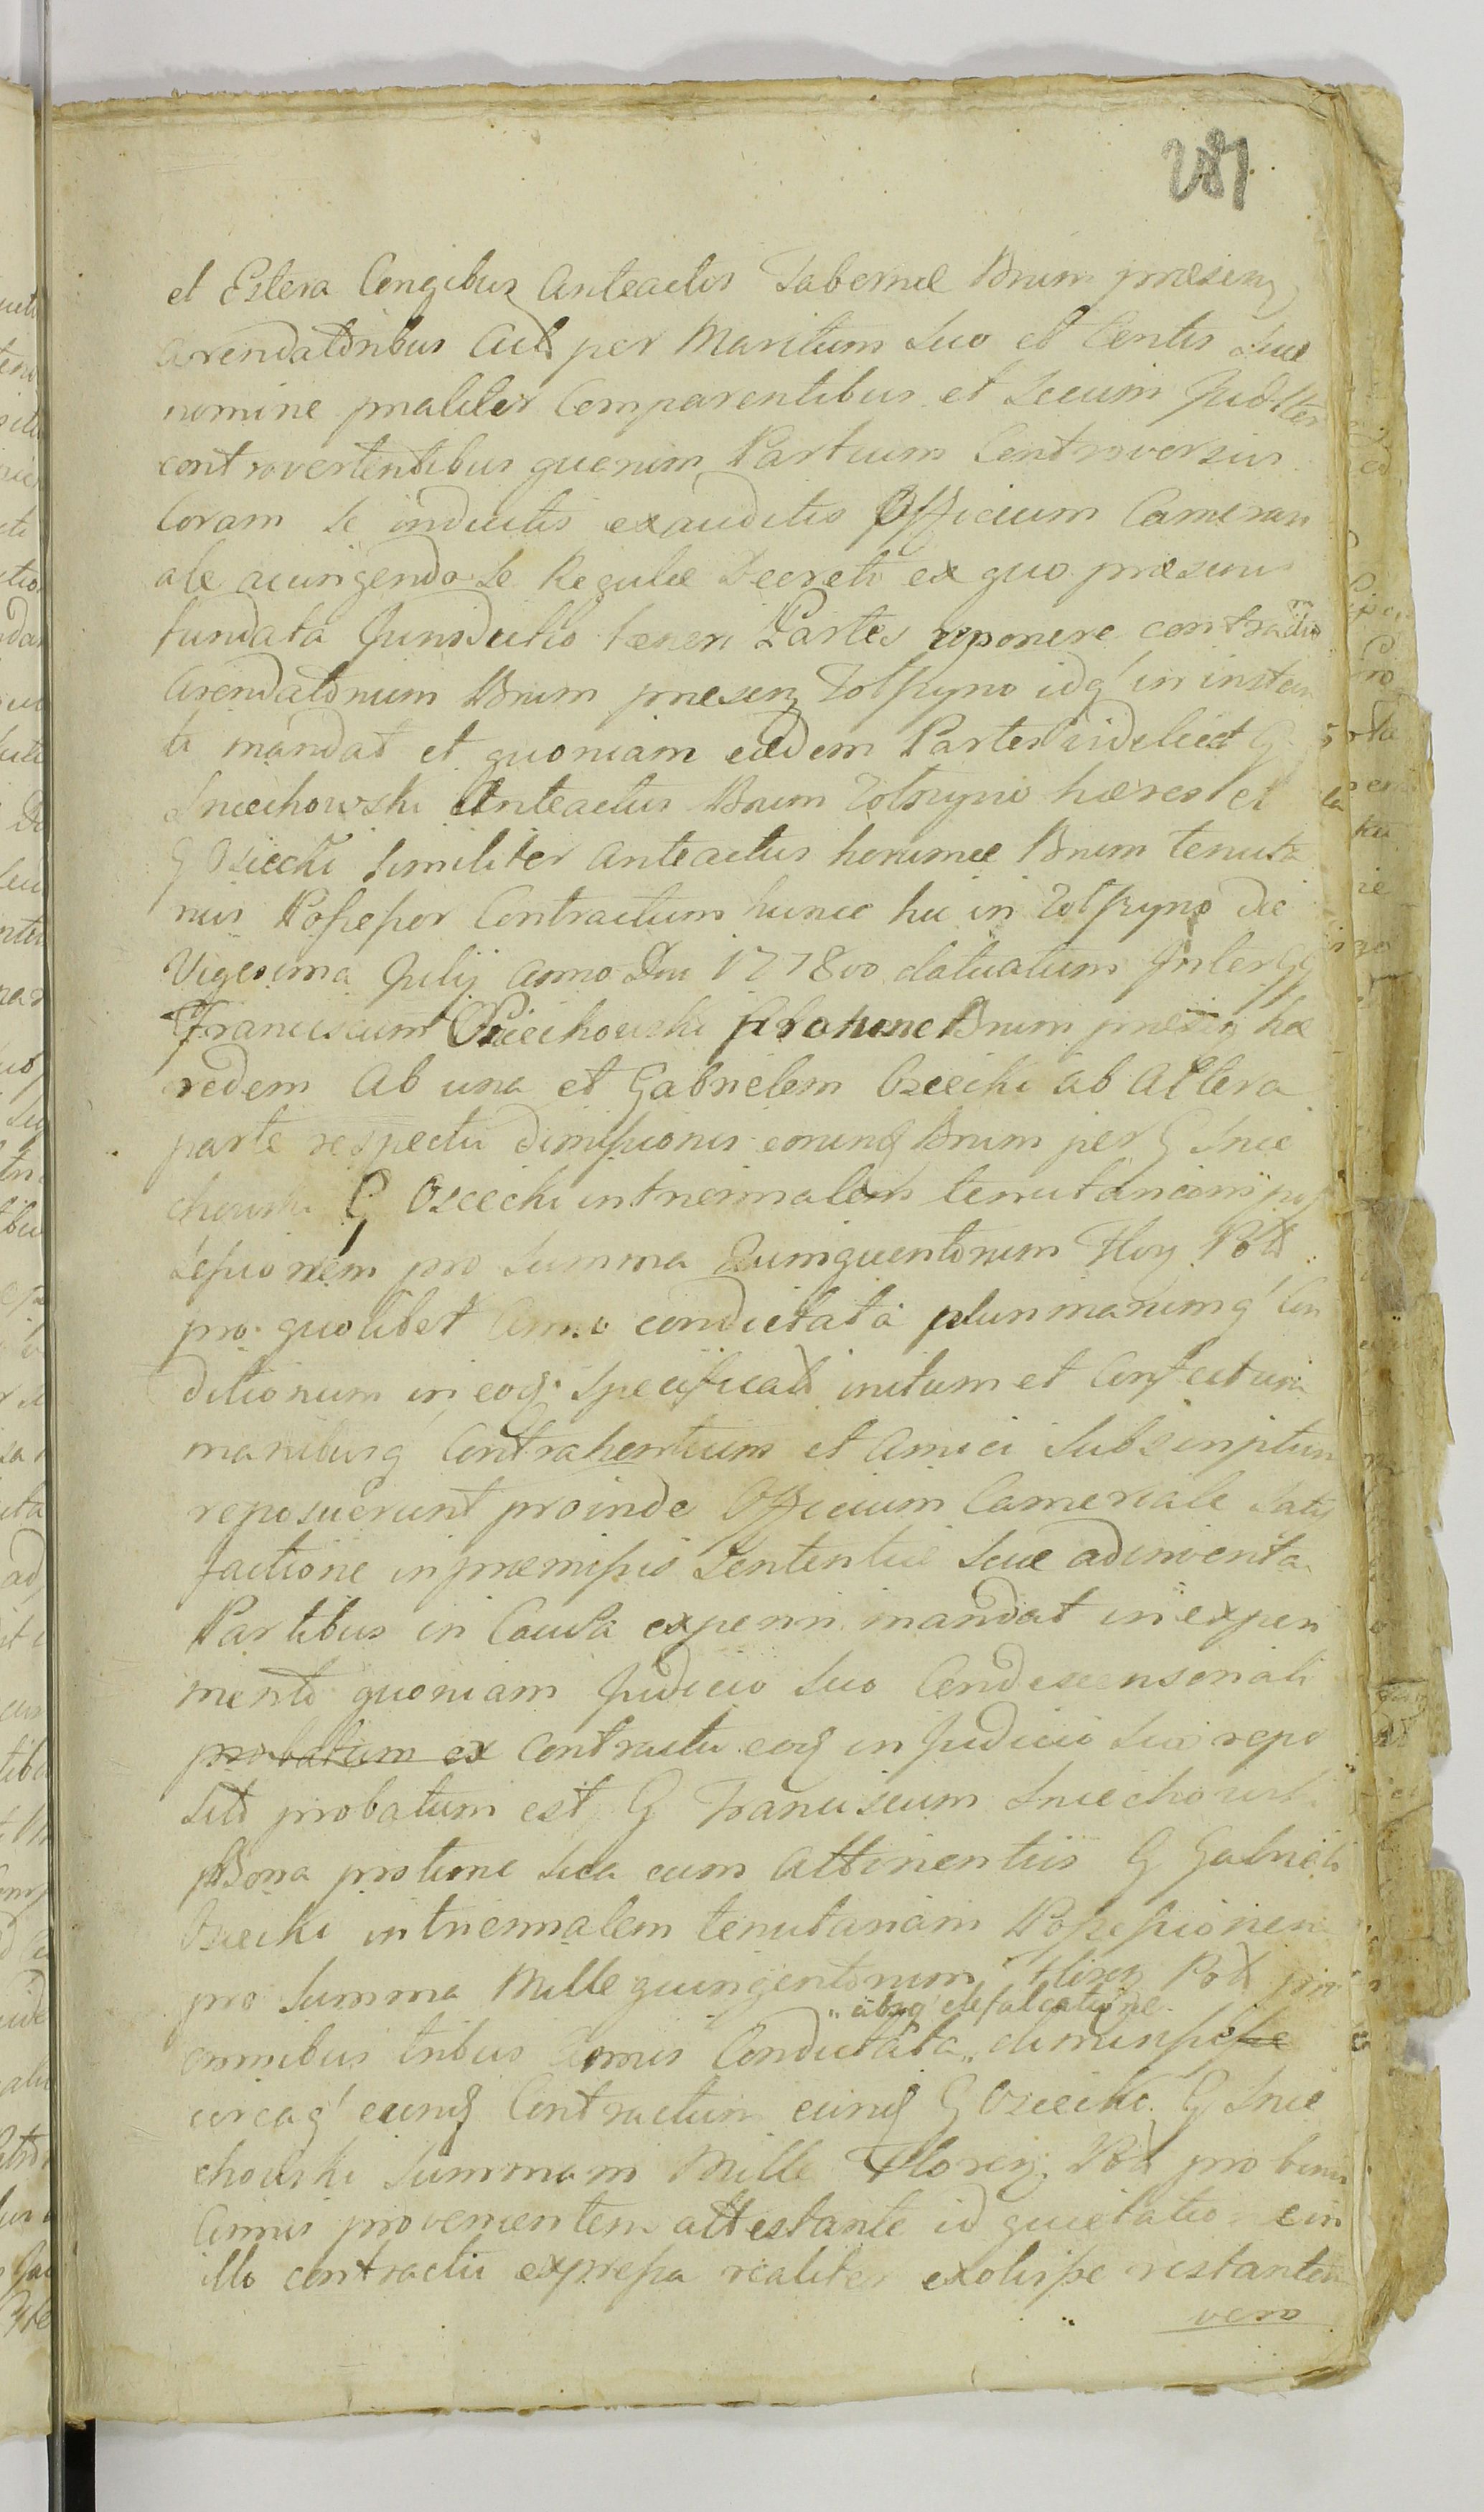 287
et Estera Congibus Anteactis Tabernæ Bnum præsenz
arendatoribus Acts per Maritum Suo et Contis Suæ
nomine prałiter Comparentibus et Secum Judlter
controvertentibus quarum Partium Controversiis
Coram Se inductis exauditis Officium Cameran
ale acingendo Se Regulæ Decreti ex quo præsens
fundata Jurisdictio tæneri Partes reponere contractum
Arendatorium Bnum præsenz Zołkyno idq' in instan
ti mandat et quoniam eædem Partes videlicet G
Sniechowski Anteactus Bnum Zotkyno hæres et
G Osiecki Similiter anteactus horumce Bnum tenuta
rius Possessor Contractum hunce hic in Zotkyno die
Vigesima Julij Anno Dni 1778vo datuatum Inter GG
Franciscum Sniechowski pro tunc Bnum præsenz hæ
redem Ab una et Gabrielem Osiecki ab Altera
parte respectu dimissionis eorund Bnum per G Snie
chowski G Osiecki in triennalem tenutariam pos
sessionem pro Summa Quinquentorum Flor Pold
pro quolibet Anno condictata plurimarumq' Con
ditionum in eod Specificats initum et Confectum
manibusq Contrahentium et Amici Subscriptum
reposuerunt proinde Officium Cameriale Satis
factione in præmissis Sententiæ Suæ adinventa
Partibus in Causa experiri mandat in experi
mento quoniam Judicio Suo Condescensoriali
probatum ex Contractu eod in Judicio Suo repo
sito probatum est G Franciscum Sniechowski
Bona pro tunc Sua cum Attinentiis G Gabrieli
Osiecki in triennalem tenutariam Possessionem
pro Summa Mille quingentorum Floren Pold pro
„ absq' defalcatione
omnibus tribus Annis Condictata „ dimisisse
circaq' eund Contractum eund G Osiecki G Snie
chowski Summam Mille Floren Pold pro binis
Annis provenientem attestante id quietatione in
illo contractu expressa realiter exolvisse restantem
vero